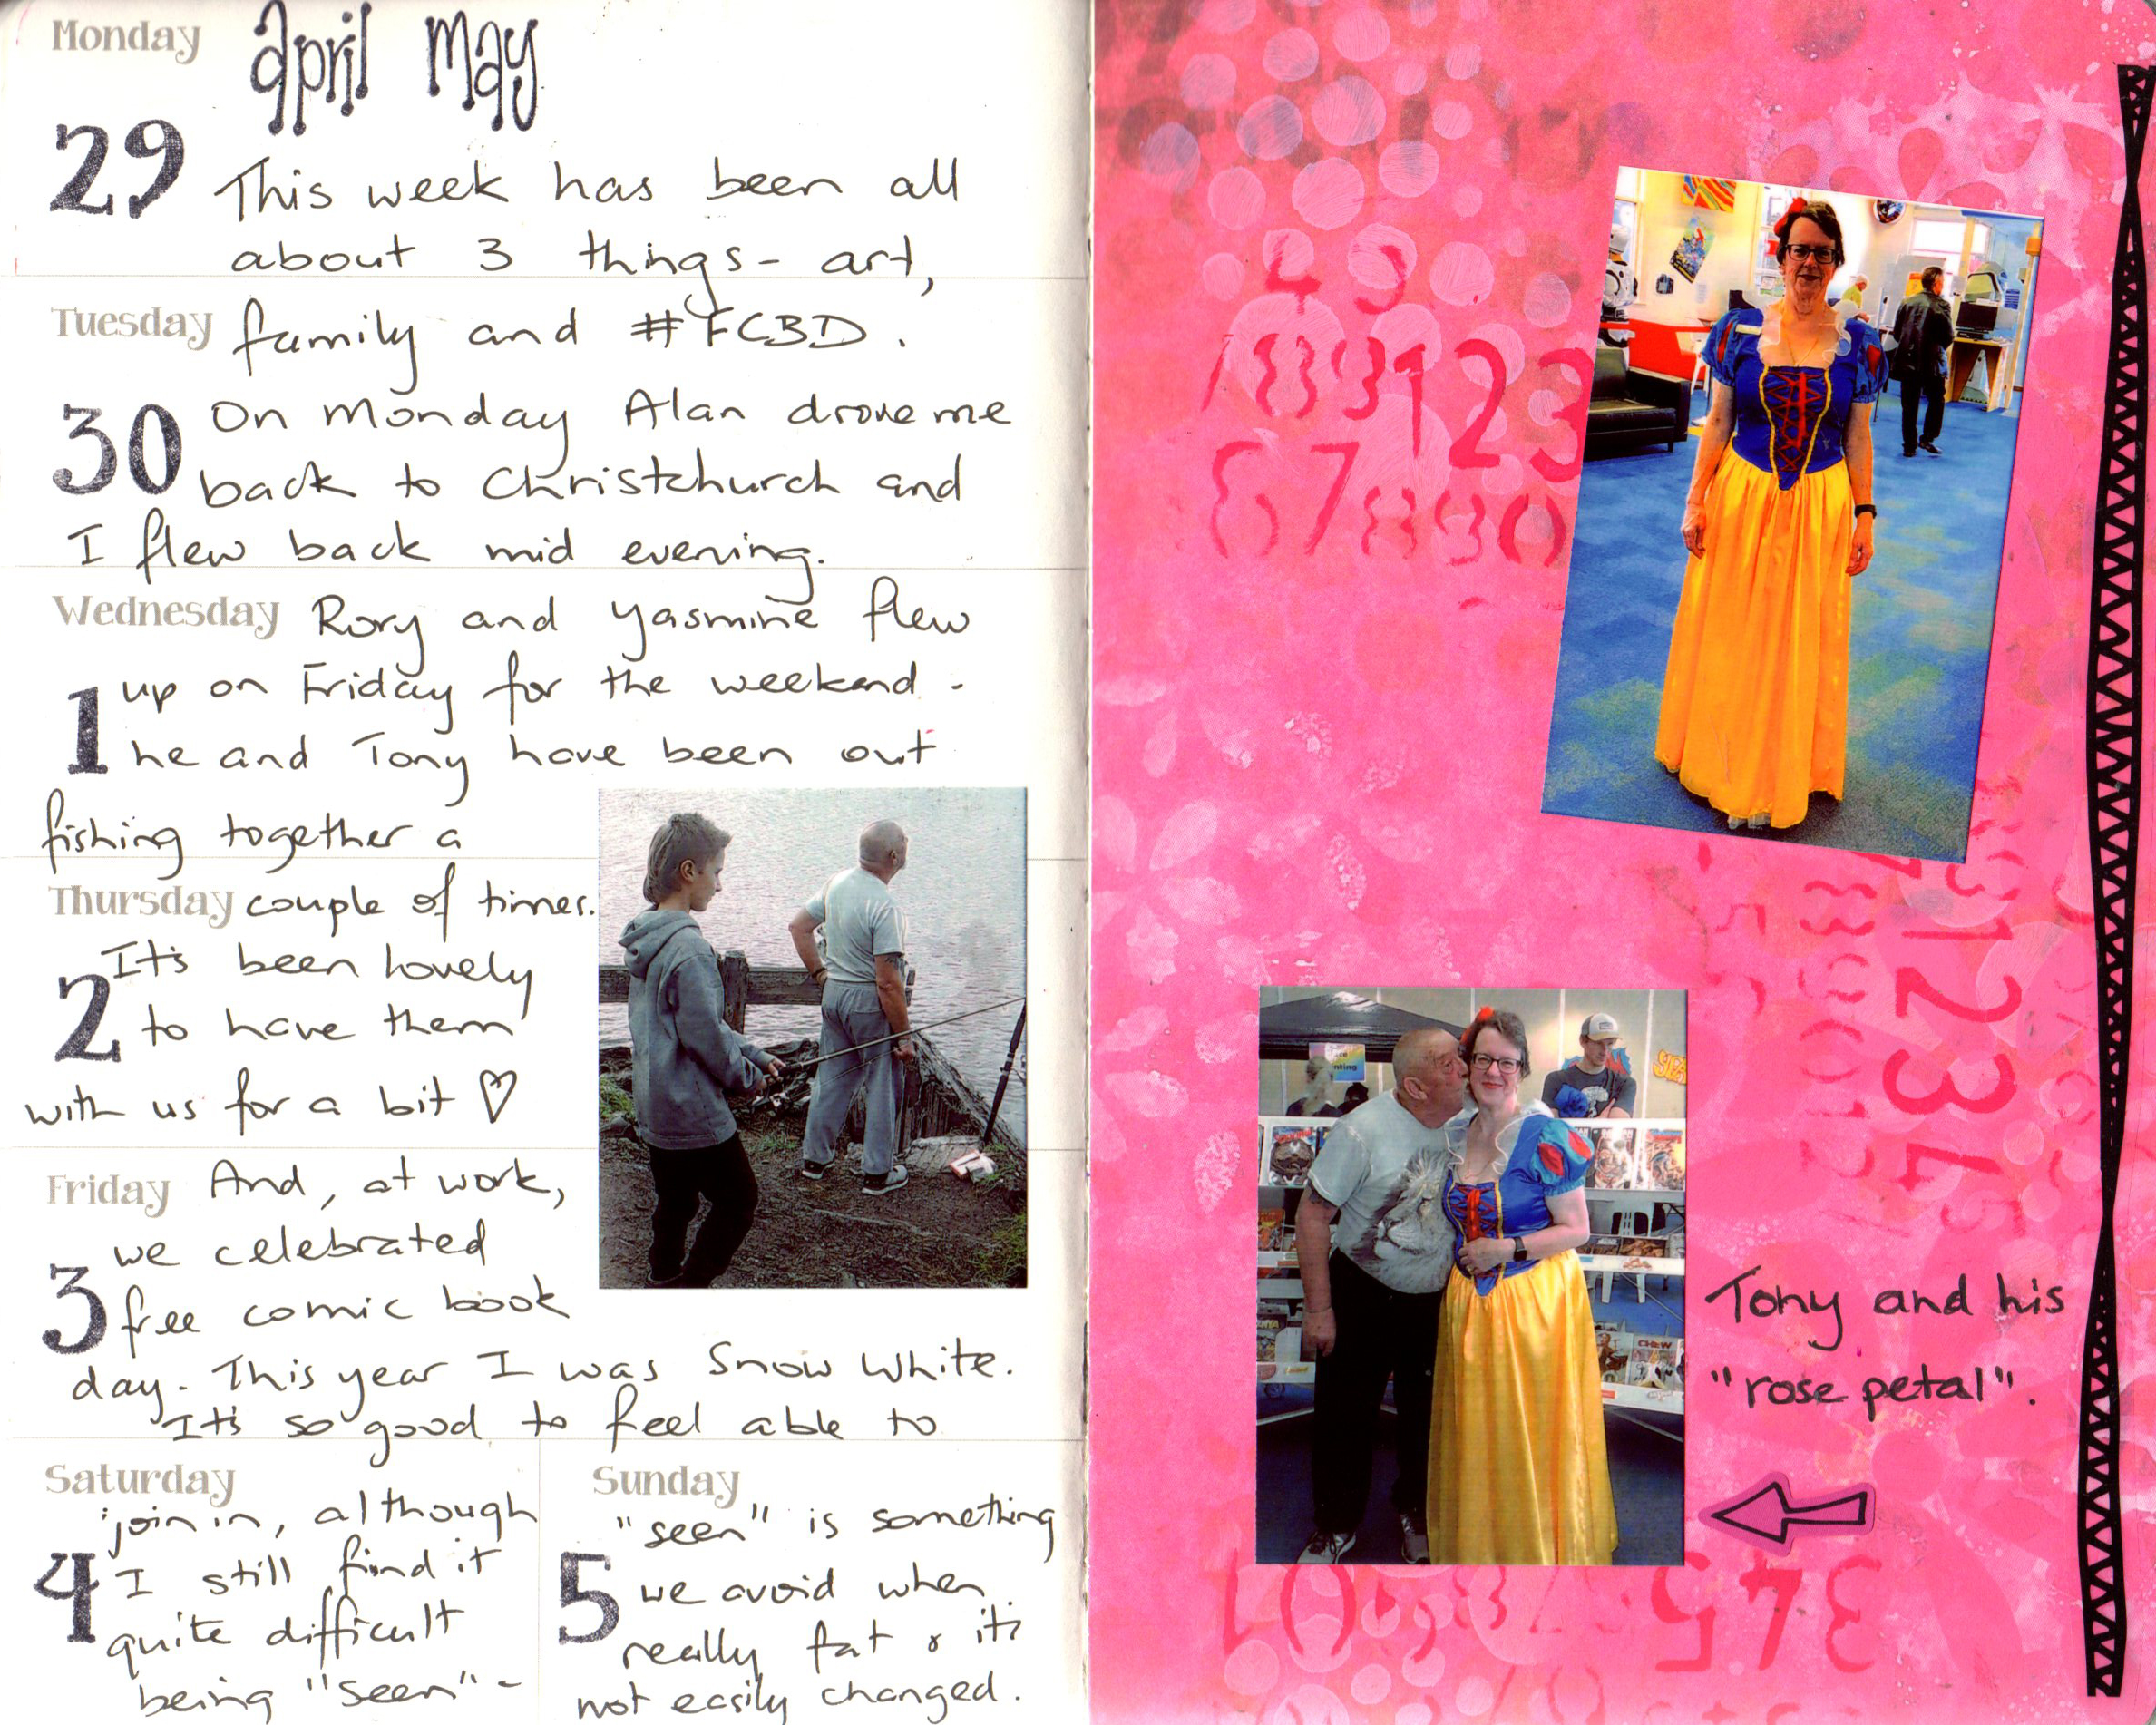 Monday
april may
29
This week has been all
about 3 things- art,
Tuesday
family and #FCBD.
30
On Monday Alan drove me
back to Christchurch and
I flew back mid evening.
Wednesday
Rory and Yasmine flew
1
up on Friday for the weekend -
he and Tony have been out
fishing together a
Thursday
couple of times.
2
It's been lovely
to have them
with us for a bit ♡
Friday
And, at work,
3
we celebrated
free comic book
day. This year I was Snow White.
It's so good to feel able to
Saturday
4
join in, although
I still find it
quite difficult
being "seen" -
Sunday
5
"seen" is something
we avoid when
really fat & it's
not easily changed.
4 5
7 8 9 1 2 3
6 7 8 9 0
1 2 3 4 5
3 4 5
Tony and his
"rose petal".
CHEW